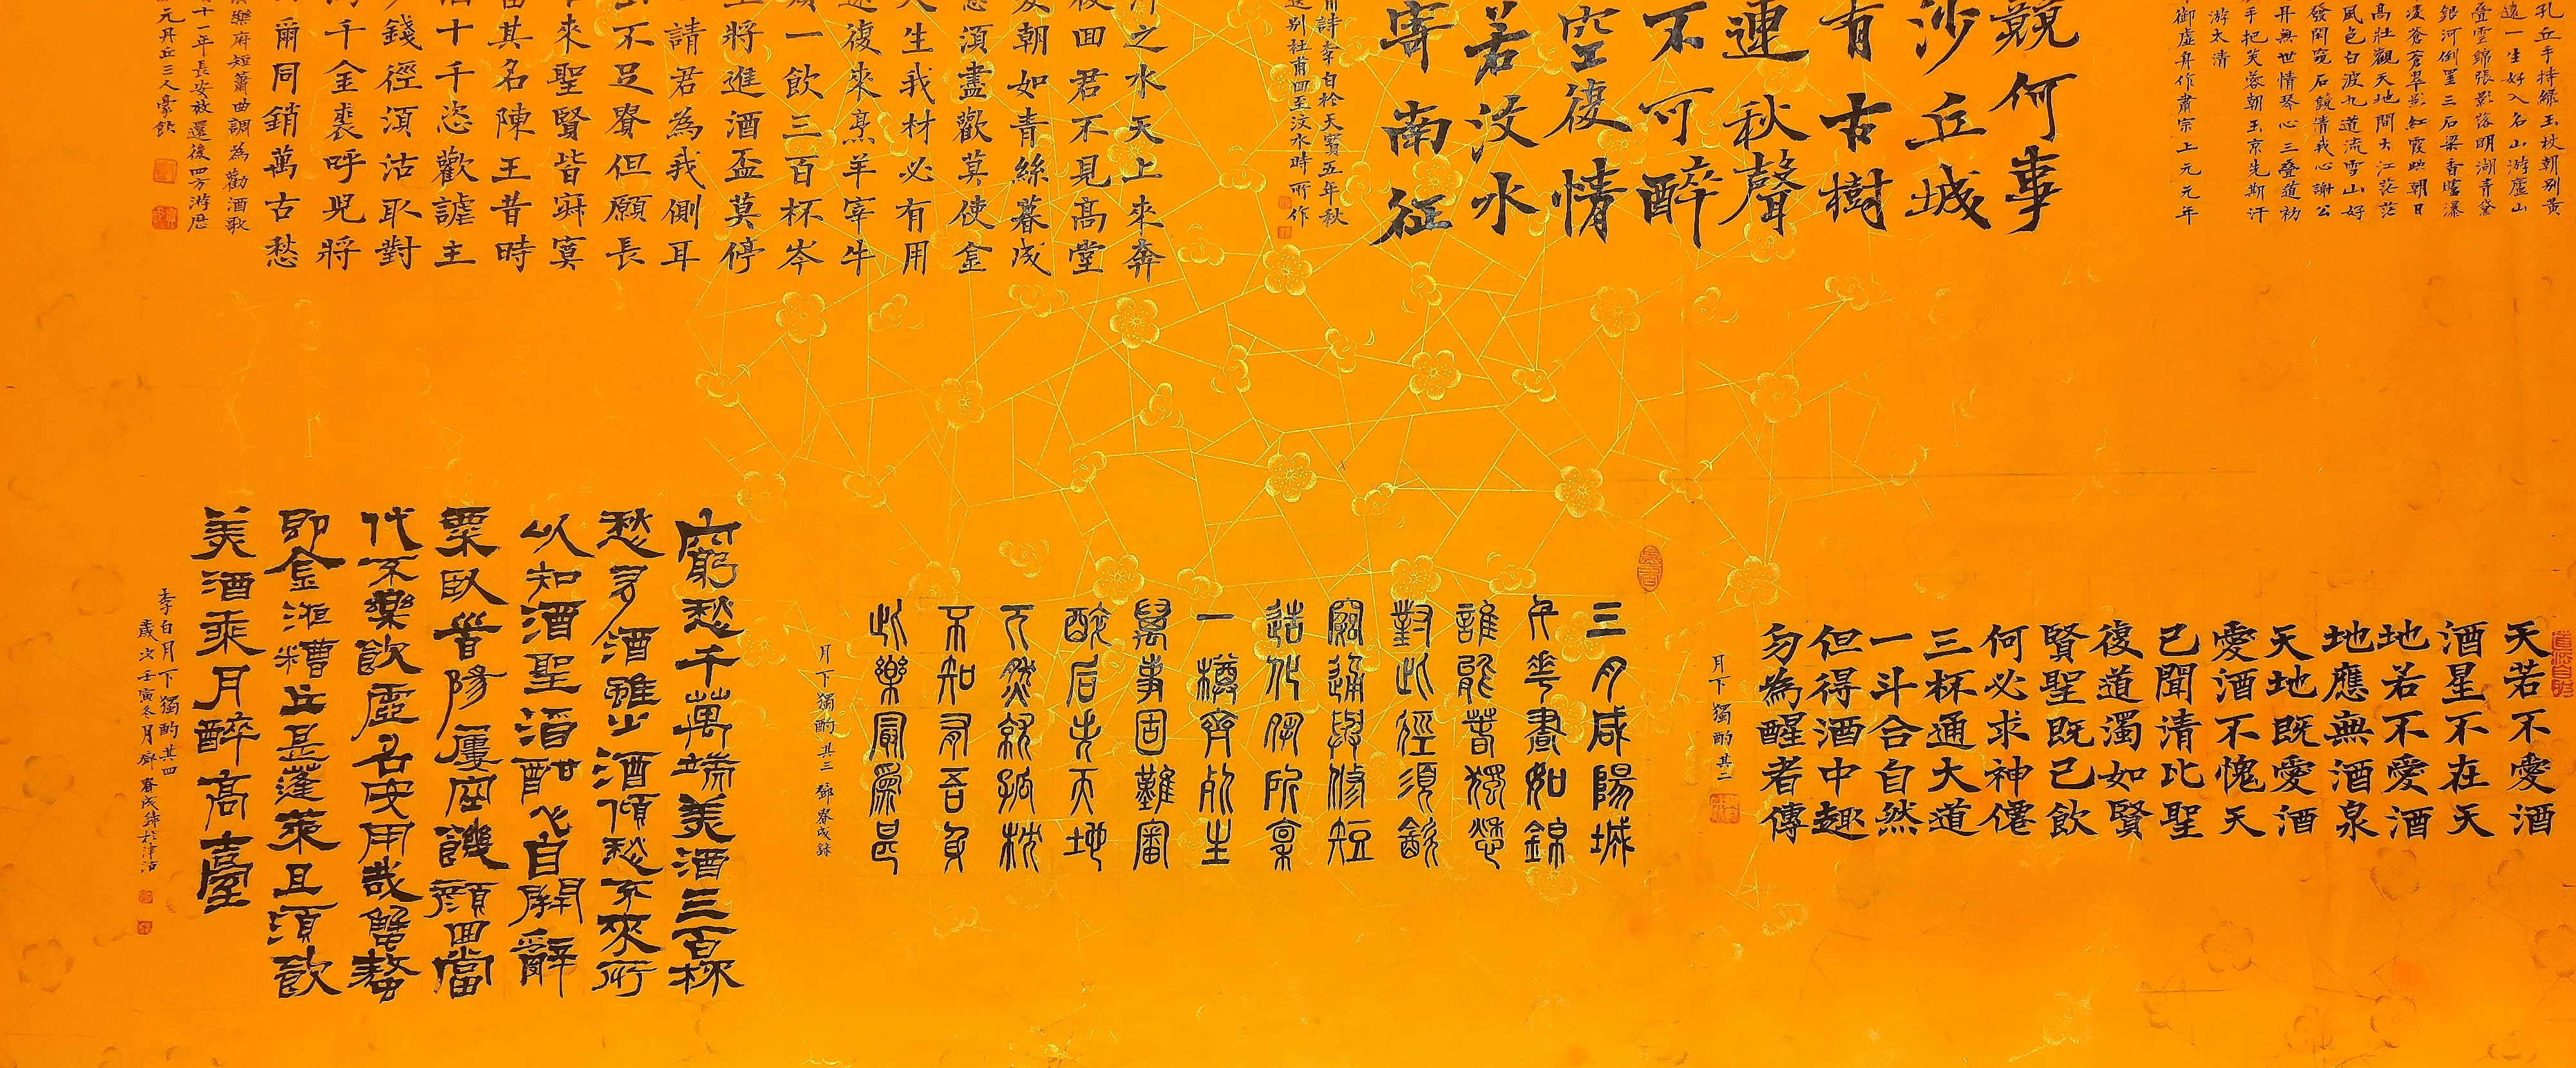 孔丘手持綠玉杖朝別黃
遠一生好入名山游廬山
疊雲錦張影落明湖青黛
銀河倒罣三石梁香爐瀑
凌蒼蒼翠影紅霞映朝日
高壯觀天地間大江茫茫
風色白波九道流雪山好
發閑窺石鏡清我心謝公
丹無世情琴心三疊道初
手把芙蓉朝玉京先期汗
游太清
御虛舟作肅宗上元元年
競何事
沙丘城
有古樹
連秋聲
不可醉
空復情
若汶水
寄南征
甫詩李白於天寶五年秋
送別杜甫回至汶水時所作
河之水天上來奔
復回君不見高堂
髮朝如青絲暮成
意須盡歡莫使金
人生我材必有用
還復來烹羊宰牛
須一飲三百杯岑
生將進酒盃莫停
請君為我側耳
玉不足貴但願長
來聖賢皆寂寞
留其名陳王昔時
酒十千恣歡謔主
少錢徑須沽取對
馬千金裘呼兒將
爾同銷萬古愁
漢樂府短簫曲調為勸酒歌
十一年長安放還後四方游歷
元丹丘三人豪飲
天若不愛酒
酒星不在天
地若不愛酒
地應無酒泉
天地既愛酒
愛酒不愧天
已聞清比聖
復道濁如賢
賢聖既已飲
何必求神僊
三杯通大道
一斗合自然
但得酒中趣
勿為醒者傳
月下獨酌其二
三月咸陽城
千花晝如錦
誰能春獨愁
對此徑須飲
窮通與修短
造化夙所稟
一樽齊死生
萬事固難審
醉后失天地
兀然就孤枕
不知有吾身
此樂最為甚
月下獨酌其三 鄧春成錄
窮愁千萬端美酒三百杯
愁多酒雖少酒傾愁不來所
以知酒聖酒酣心自開辭
粟臥首陽屢空饑顏回當
代不樂飲虛名安用哉蟹螯
即金液糟丘是蓬萊且須飲
美酒乘月醉高臺
李白月下獨酌其四
歲次壬寅冬月鄧春成錄於津沽